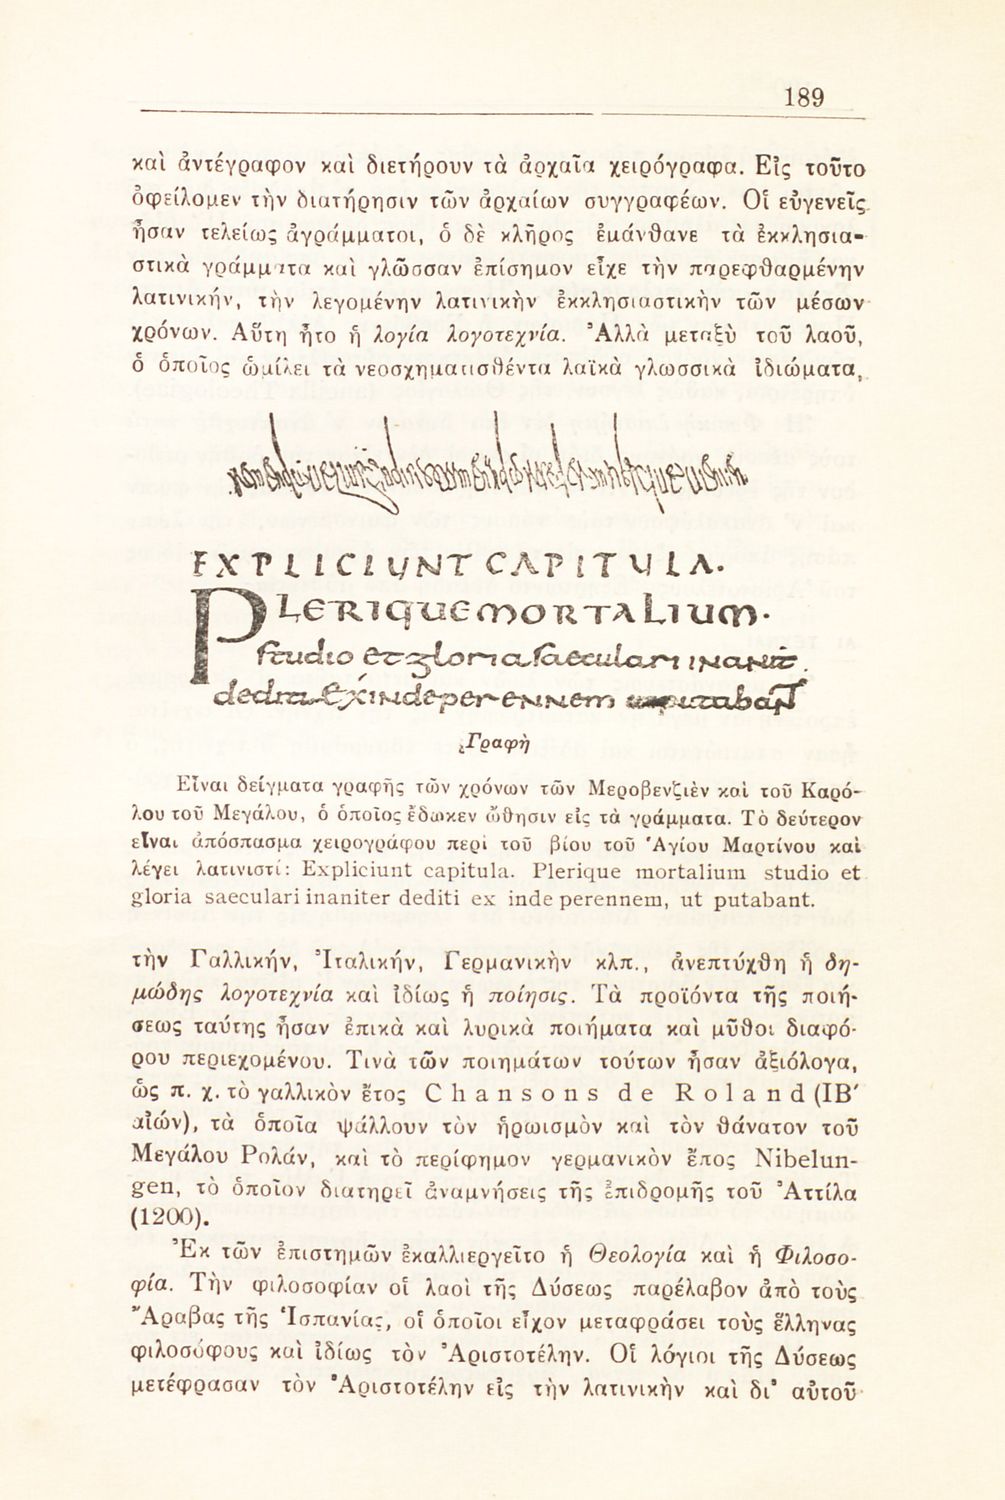 189
καὶ ἀντέγραφον καὶ διετήρουν τὰ ἀρχαῖα χειρόγραφα. Εἰς τοῦτο
ὀφείλομεν τὴν διατήρησιν τῶν ἀρχαίων συγγραφέων. Οἱ εὐγενεῖς
ἦσαν τελείως ἀγράμματοι, ὁ δὲ κλῆρος ἐμάνθανε τὰ ἐκκλησια-
στικὰ γράμματα καὶ γλῶσσαν ἐπίσημον εἶχε τὴν παρεφθαρμένην
λατινικήν, τὴν λεγομένην λατινικὴν ἐκκλησιαστικὴν τῶν μέσων
χρόνων. Αὕτη ἦτο ἡ λογία λογοτεχνία. Ἀλλὰ μεταξὺ τοῦ λαοῦ,
ὁ ὁποῖος ὡμίλει τὰ νεοσχηματισθέντα λαϊκὰ γλωσσικὰ ἰδιώματα,
EXPLICIUNT CAPITULA.
PLERIQUE MORTALIUM.
studio et gloria saeculari inanit
dediti ex inde perennem ut putabant
Γραφὴ
Εἶναι δείγματα γραφῆς τῶν χρόνων τῶν Μεροβενζιὲν καὶ τοῦ Καρό-
λου τοῦ Μεγάλου, ὁ ὁποῖος ἔδωκεν ὤθησιν εἰς τὰ γράμματα. Τὸ δεύτερον
εἶναι ἀπόσπασμα χειρογράφου περὶ τοῦ βίου τοῦ Ἁγίου Μαρτίνου καὶ
λέγει λατινιστί: Expliciunt capitula. Plerique mortalium studio et
gloria saeculari inaniter dediti ex inde perennem, ut putabant.
τὴν Γαλλικήν, Ἰταλικήν, Γερμανικὴν κλπ., ἀνεπτύχθη ἡ δη-
μώδης λογοτεχνία καὶ ἰδίως ἡ ποίησις. Τὰ προϊόντα τῆς ποιή-
σεως ταύτης ἦσαν ἐπικὰ καὶ λυρικὰ ποιήματα καὶ μῦθοι διαφό-
ρου περιεχομένου. Τινὰ τῶν ποιημάτων τούτων ἦσαν ἀξιόλογα,
ὡς π. χ. τὸ γαλλικὸν ἔτος Chansons de Roland (ΙΒ′
αἰών), τὰ ὁποῖα ψάλλουν τὸν ἡρωισμὸν καὶ τὸν θάνατον τοῦ
Μεγάλου Ρολάν, καὶ τὸ περίφημον γερμανικὸν ἔπος Nibelun-
gen, τὸ ὁποῖον διατηρεῖ ἀναμνήσεις τῆς ἐπιδρομῆς τοῦ Ἀττίλα
(1200).
Ἐκ τῶν ἐπιστημῶν ἐκαλλιεργεῖτο ἡ Θεολογία καὶ ἡ Φιλοσο-
φία. Τὴν φιλοσοφίαν οἱ λαοὶ τῆς Δύσεως παρέλαβον ἀπὸ τοὺς
Ἄραβας τῆς Ἱσπανίας, οἱ ὁποῖοι εἶχον μεταφράσει τοὺς ἕλληνας
φιλοσόφους καὶ ἰδίως τὸν Ἀριστοτέλην. Οἱ λόγιοι τῆς Δύσεως
μετέφρασαν τὸν Ἀριστοτέλην εἰς τὴν λατινικὴν καὶ δι' αὐτοῦ